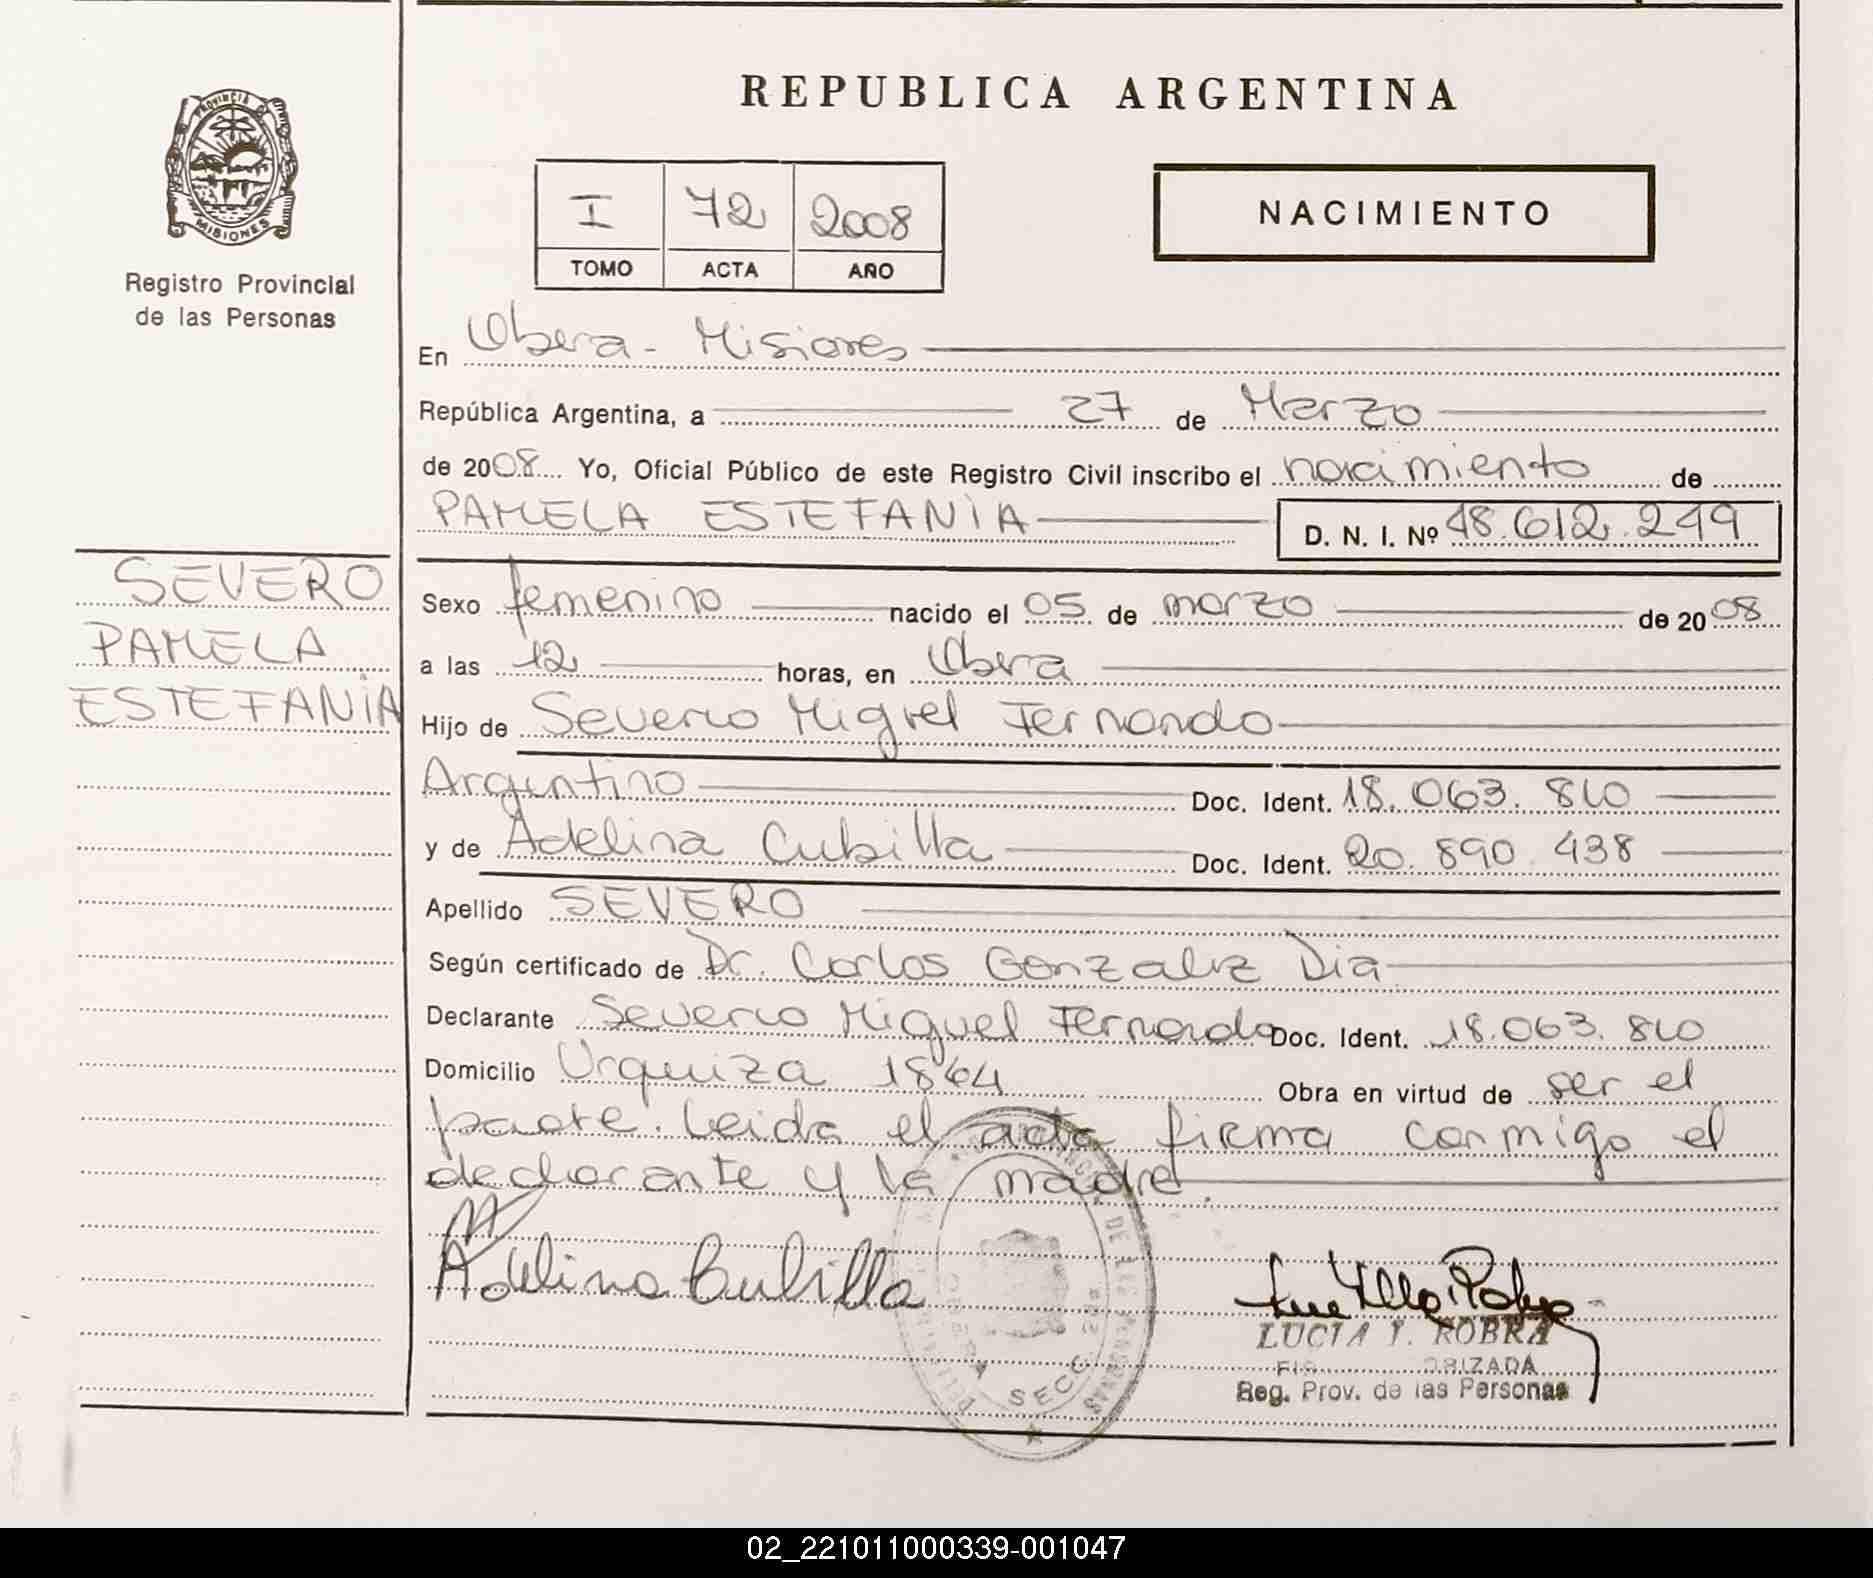 REPUBLICA ARGENTINA
PROVINCIA DE
MISIONES
Registro Provincial
de las Personas
I 72 2008
TOMO ACTA AÑO
NACIMIENTO
En Obera - Misiones
República Argentina, a 27 de Marzo
de 2008 Yo, Oficial Público de este Registro Civil inscribo el nacimiento de
PAMELA ESTEFANIA D. N. I. Nº 48.612.249
SEVERO
PAMELA
ESTEFANIA
Sexo femenino nacido el 05 de marzo de 2008
a las 12 horas, en Obera
Hijo de Severo Miguel Fernando
Argentino Doc. Ident. 18.063.810
y de Adelina Cubilla Doc. Ident. 20.890.438
Apellido SEVERO
Según certificado de Dr. Carlos Gonzalez Dia
Declarante Severo Miguel Fernando Doc. Ident. 18.063.810
Domicilio Urquiza 1864 Obra en virtud de ser el
padre. Leida el acta firma conmigo el
declarante y la madre.
Adelina Cubilla
LUCIA I. ROBRA
Reg. Prov. de las Personas
SECC
02_221011000339-001047